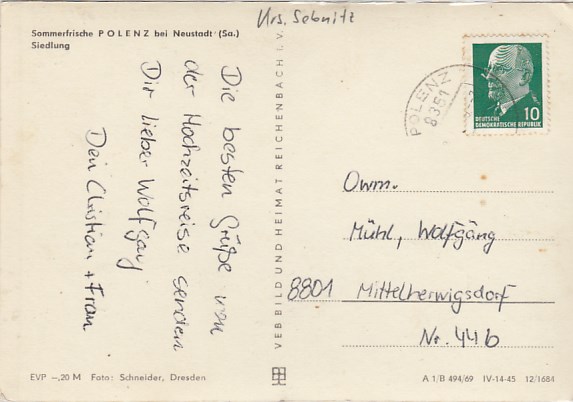 Krs. Sebnitz
Sommerfrische POLENZ bei Neustadt (Sa.)
Siedlung
Die besten Grüße von
der Hochzeitsreise senden
Dir lieber Wolfgang
Dein Christian + Frau
VEB BILD UND HEIMAT REICHENBACH I. V.
POLENZ
8351
10
DEUTSCHE
DEMOKRATISCHE REPUBLIK
Owm.
Mühl, Wolfgang
8801 Mittelherwigsdorf
Nr. 44b
EVP –,20 M Foto: Schneider, Dresden
A 1/B 494/69 IV-14-45 12/1684